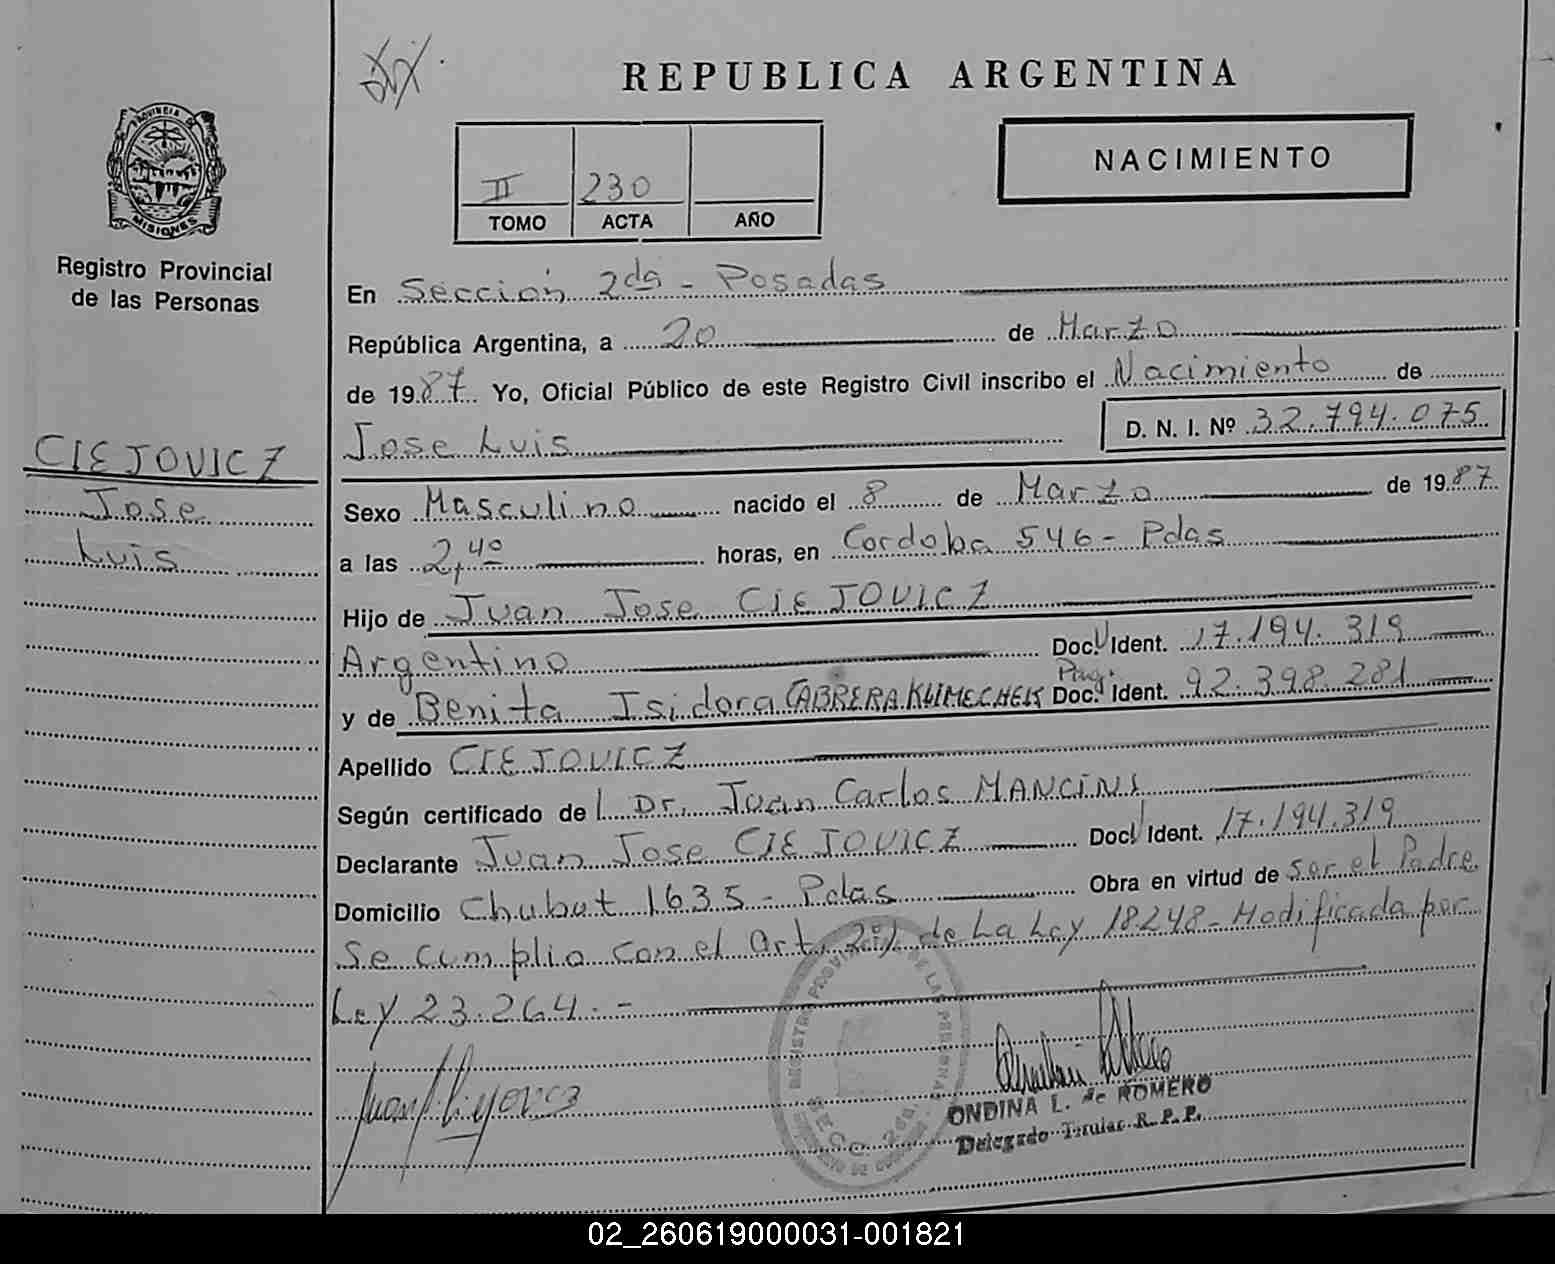 REPUBLICA ARGENTINA
PROVINCIA DE
MISIONES
Registro Provincial
de las Personas
II 230
TOMO ACTA AÑO
NACIMIENTO
En Sección 2da - Posadas
República Argentina, a 20 de Marzo
de 1987 Yo, Oficial Público de este Registro Civil inscribo el Nacimiento de
Jose Luis D. N. I. Nº 32.794.075
CIEJOVICZ
Jose
Luis
Sexo Masculino nacido el 8 de Marzo de 1987
a las 2,40 horas, en Cordoba 546 - Pdas
Hijo de Juan Jose CIEJOVICZ
Argentino Doc. Ident. 17.194.319
y de Benita Isidora CABRERA KLIMECHEK Doc. Ident. 92.398.281
Parg.
Apellido CIEJOVICZ
Según certificado de l Dr. Juan Carlos MANCINI
Declarante Juan Jose CIEJOVICZ Doc. Ident. 17.194.319
Domicilio Chubut 1635 - Pdas Obra en virtud de ser el Padre
Se cumplio con el art. 2º de La Ley 18248 - Modificada por
Ley 23.264.-
REGISTRO PROVINCIAL DE LAS PERSONAS
SECC. 2da
ONDINA L. de ROMERO
Delegado Titular R. P. P.
02_260619000031-001821